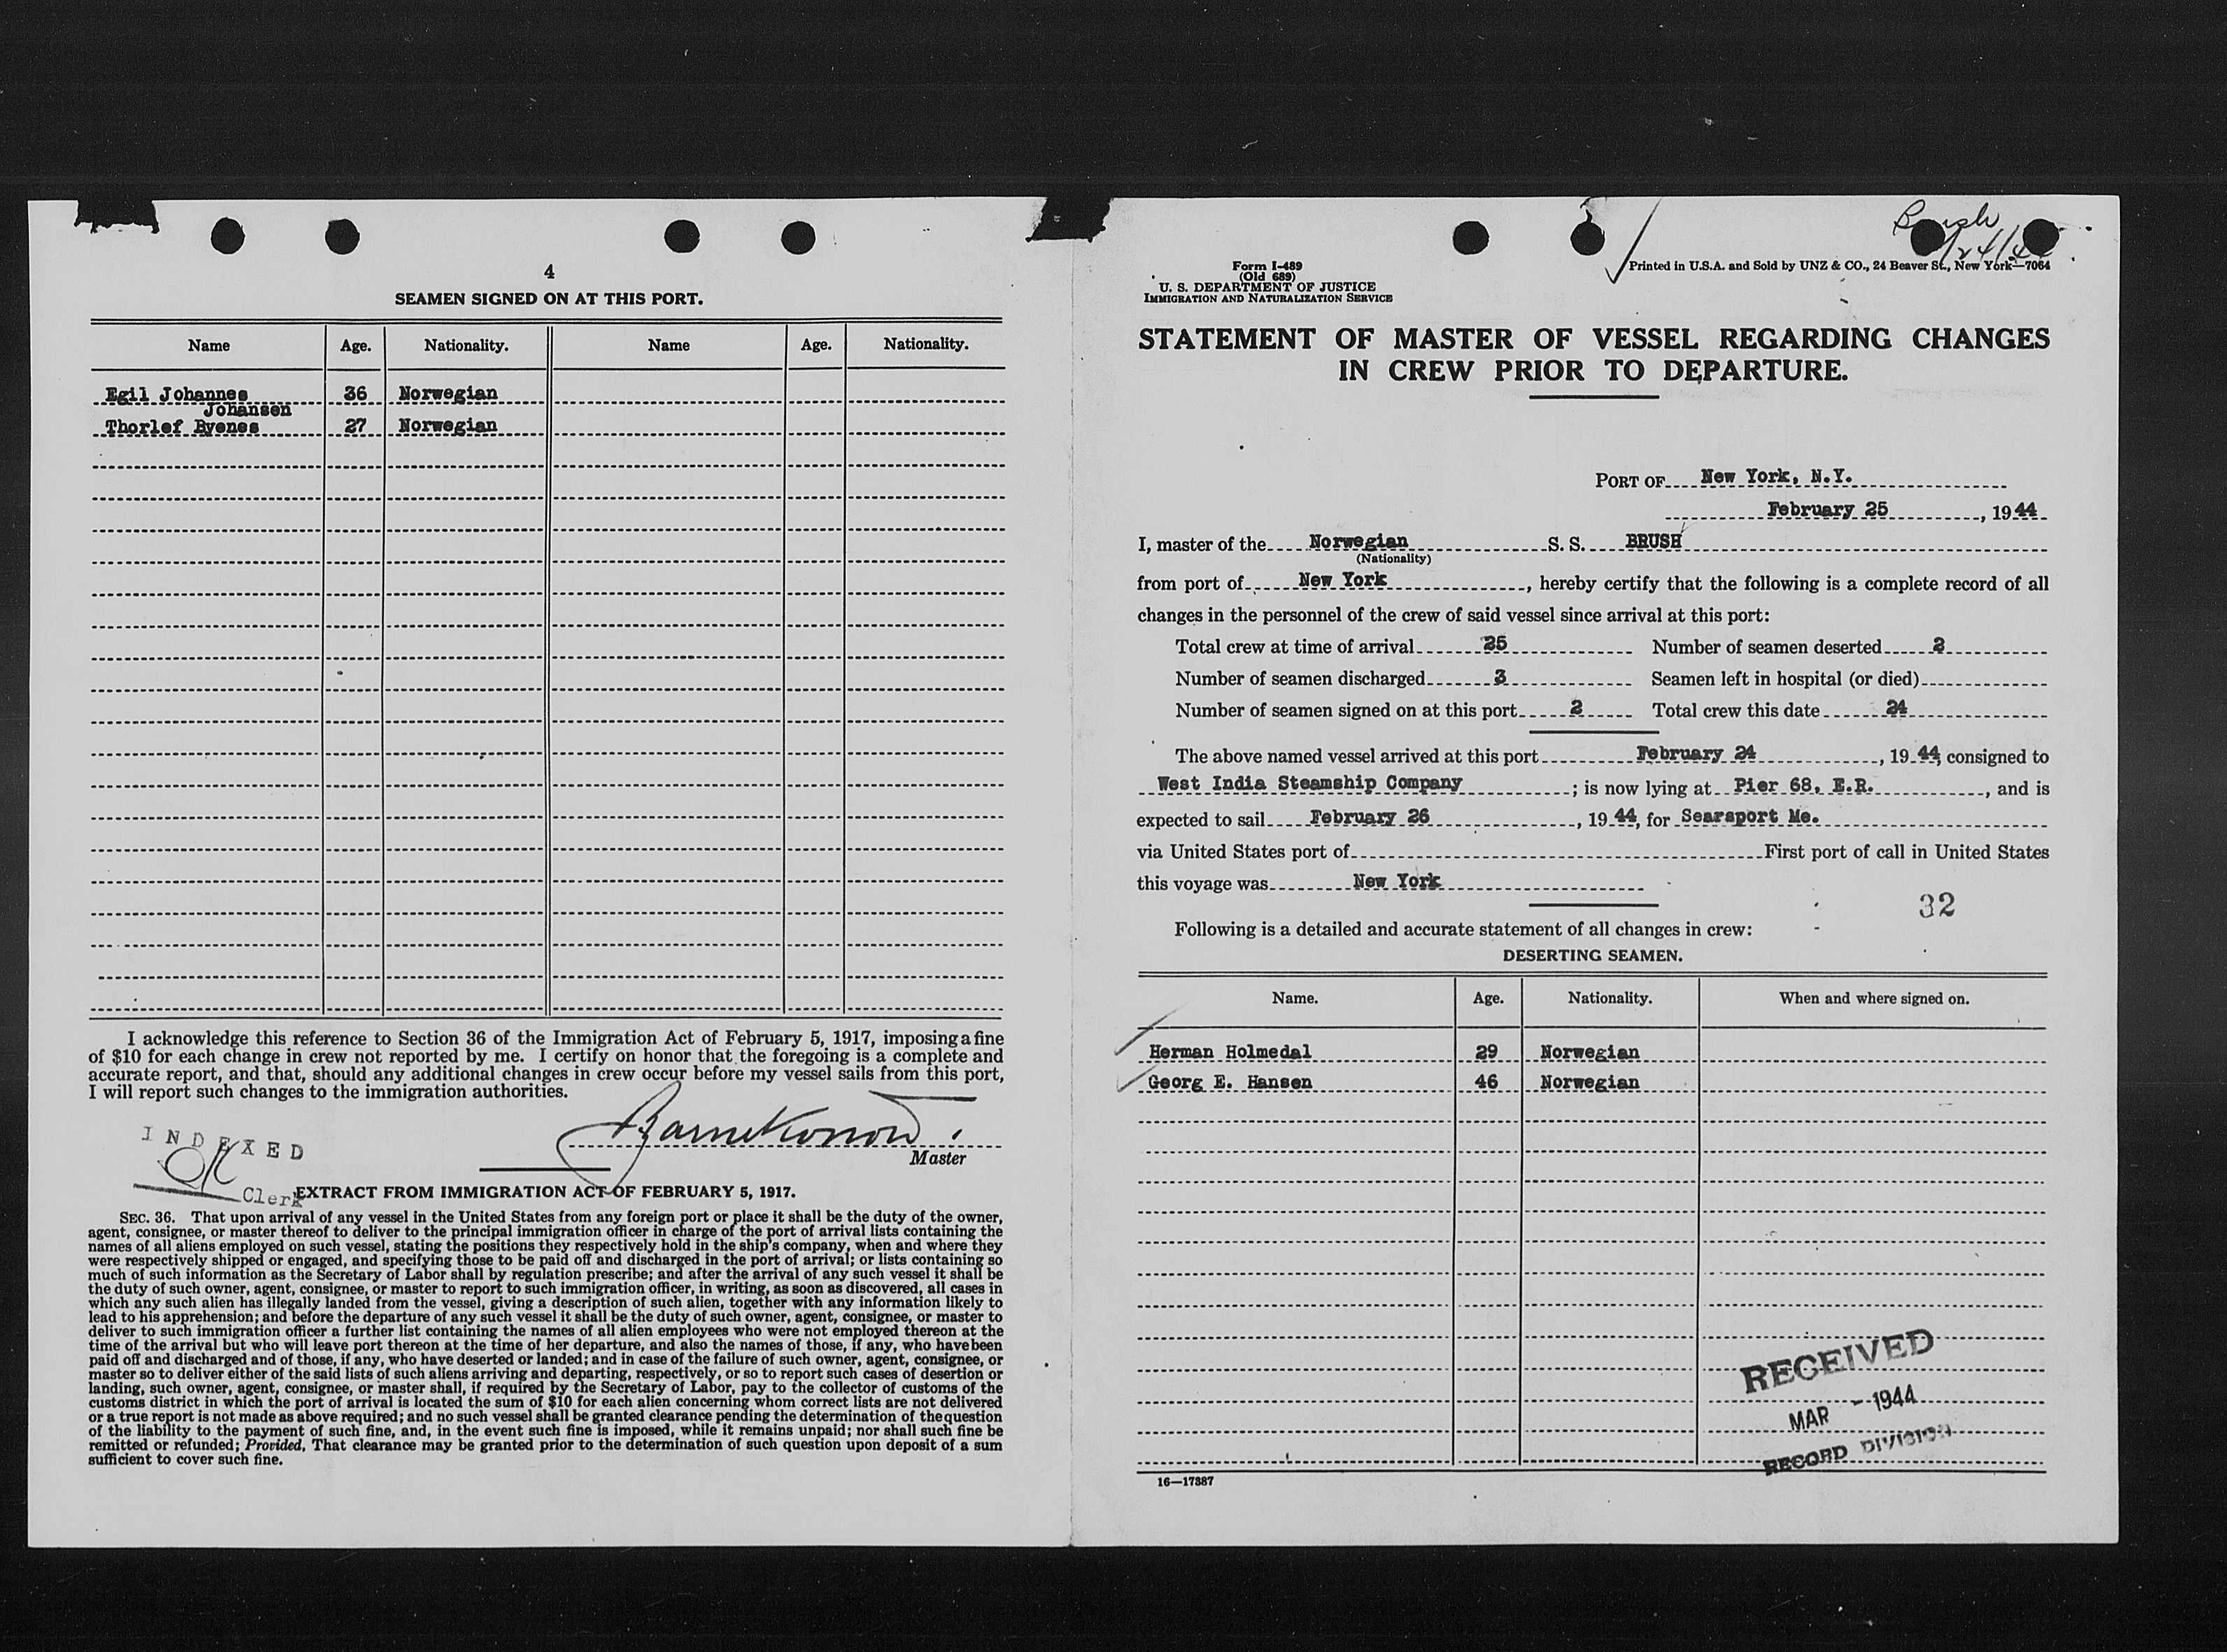 4
SEAMEN SIGNED ON AT THIS PORT.
Name Age. Nationality. Name Age. Nationality.
Egil Johannes 36 Norwegian
Johansen
Thorlef Byenes 27 Norwegian
I acknowledge this reference to Section 36 of the Immigration Act of February 5, 1917, imposing a fine
of $10 for each change in crew not reported by me. I certify on honor that the foregoing is a complete and
accurate report, and that, should any additional changes in crew occur before my vessel sails from this port,
I will report such changes to the immigration authorities.
INDEXED
OK
Master
Clerk
EXTRACT FROM IMMIGRATION ACT OF FEBRUARY 5, 1917.
SEC. 36. That upon arrival of any vessel in the United States from any foreign port or place it shall be the duty of the owner,
agent, consignee, or master thereof to deliver to the principal immigration officer in charge of the port of arrival lists containing the
names of all aliens employed on such vessel, stating the positions they respectively hold in the ship's company, when and where they
were respectively shipped or engaged, and specifying those to be paid off and discharged in the port of arrival; or lists containing so
much of such information as the Secretary of Labor shall by regulation prescribe; and after the arrival of any such vessel it shall be
the duty of such owner, agent, consignee, or master to report to such immigration officer, in writing, as soon as discovered, all cases in
which any such alien has illegally landed from the vessel, giving a description of such alien, together with any information likely to
lead to his apprehension; and before the departure of any such vessel it shall be the duty of such owner, agent, consignee, or master to
deliver to such immigration officer a further list containing the names of all alien employees who were not employed thereon at the
time of the arrival but who will leave port thereon at the time of her departure, and also the names of those, if any, who have been
paid off and discharged and of those, if any, who have deserted or landed; and in case of the failure of such owner, agent, consignee, or
master so to deliver either of the said lists of such aliens arriving and departing, respectively, or so to report such cases of desertion or
landing, such owner, agent, consignee, or master shall, if required by the Secretary of Labor, pay to the collector of customs of the
customs district in which the port of arrival is located the sum of $10 for each alien concerning whom correct lists are not delivered
or a true report is not made as above required; and no such vessel shall be granted clearance pending the determination of the question
of the liability to the payment of such fine, and, in the event such fine is imposed, while it remains unpaid; nor shall such fine be
remitted or refunded; Provided, That clearance may be granted prior to the determination of such question upon deposit of a sum
sufficient to cover such fine.
Brush
2/24/44
Form I-489
(Old 689)
U. S. DEPARTMENT OF JUSTICE
IMMIGRATION AND NATURALIZATION SERVICE
Printed in U.S.A. and Sold by UNZ & CO., 24 Beaver St., New York—7064
STATEMENT OF MASTER OF VESSEL REGARDING CHANGES
IN CREW PRIOR TO DEPARTURE.
PORT OF New York, N.Y.
February 25, 1944
I, master of the Norwegian S. S. BRUSH
(Nationality)
from port of New York, hereby certify that the following is a complete record of all
changes in the personnel of the crew of said vessel since arrival at this port:
Total crew at time of arrival 25 Number of seamen deserted 2
Number of seamen discharged 3 Seamen left in hospital (or died)
Number of seamen signed on at this port 2 Total crew this date 24
The above named vessel arrived at this port February 24, 1944, consigned to
West India Steamship Company; is now lying at Pier 68, E.R., and is
expected to sail February 26, 1944, for Searsport Me.
via United States port of First port of call in United States
this voyage was New York
32
Following is a detailed and accurate statement of all changes in crew:
DESERTING SEAMEN.
Name. Age. Nationality. When and where signed on.
Herman Holmedal 29 Norwegian
Georg E. Hansen 46 Norwegian
RECEIVED
MAR - 1944
RECORD DIVISION
16—17387